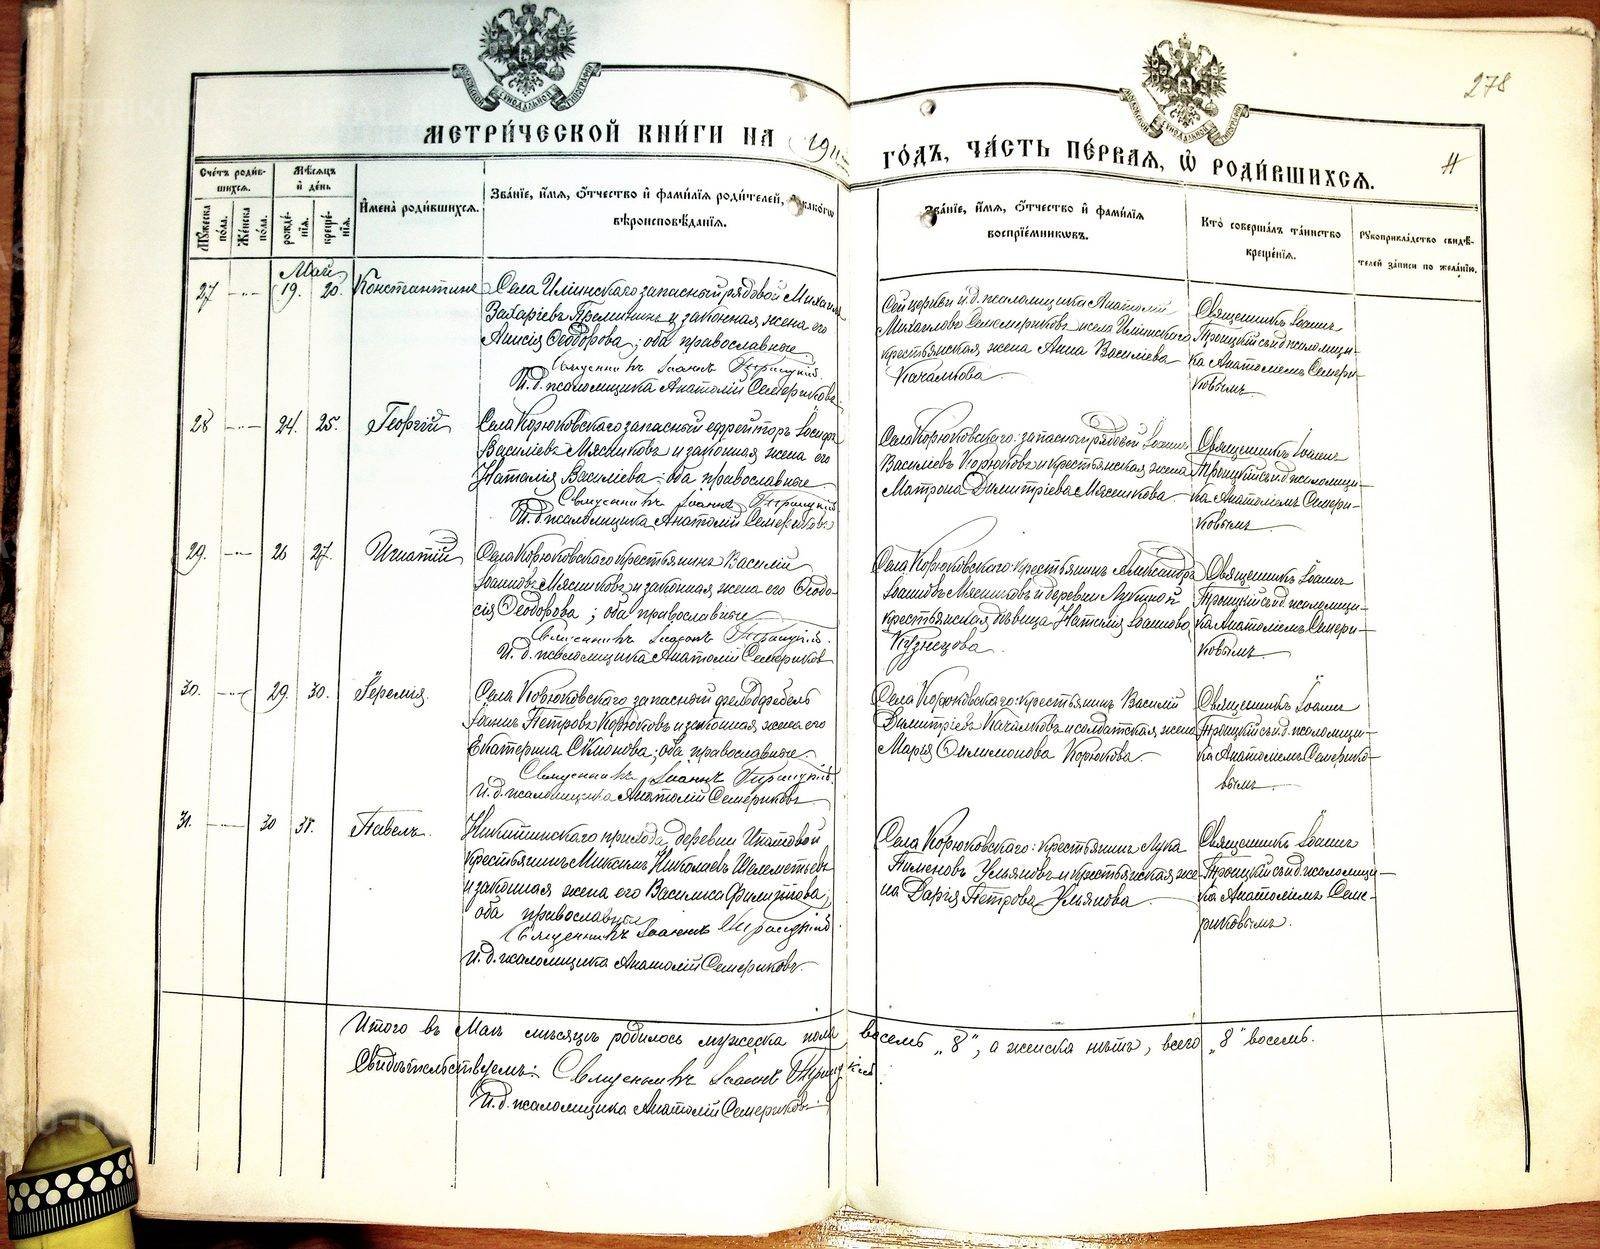 278
МЕТРИ́ЧЕСКОЙ КНИ́ГИ НА 1911
ГО́ДЪ, ЧА́СТЬ ПЕ́РВАЯ, Ѡ҆ РОДИ́ВШИХСЯ.
Сче́тъ роди́в-
шихся.
Мѣ́сяцъ
и҆ де́нь
Мꙋ́жеска по́ла.
Же́нска по́ла.
рожде́-
нїя.
креще́-
нїя.
И҆мена̀ роди́вшихся.
Зва́нїе, и҆́мя, ѻ҆́тчество и҆ фами́лїя роди́телей, и҆ како́гѡ
вѣроисповѣ́данїя.
Зва́нїе, и҆́мя, ѻ҆́тчество и҆ фами́лїя
воспрїе́мникѡвъ.
Кто̀ соверша́лъ та́инство
креще́нїя.
Рꙋкоприкла́дство свидѣ́-
телей за́писи по жела́нїю.
Май
27 19. 20. Константинъ
Села Илiинскаго запасный рядовой Михаилъ
Захарiевъ и законная жена его
Анисiя Ѳеодорова; оба православные
Священникъ Iоаннъ Троицкiй.
И. д. псаломщика Анатолiй Семериковъ.
Сей церкви и. д. псаломщика Анатолiй
Михаиловъ Семериковъ и села Илiинскаго
крестьянская жена Анна Василiева
Качалкова
Священникъ Iоаннъ
Троицкiй съ и. д. псаломщи-
ка Анатолiемъ Семери-
ковымъ
28 24. 25. Георгiй
Села Корюковскаго запасный ефрейторъ Iосифъ
Василiевъ Мясниковъ и законная жена его
Наталiя Василiева; оба православные
Священникъ Iоаннъ Троицкiй
И. д. псаломщика Анатолiй Семериковъ
Села Корюковскаго: запасный рядовой Iоаннъ
Василiевъ Корюковъ и крестьянская жена
Матрона Димитрiева Мясникова
Священникъ Iоаннъ
Троицкiй съ и. д. псаломщи-
ка Анатолiемъ Семери-
ковымъ
29. 26 27. Игнатiй
Села Корюковскаго крестьянинъ Василiй
Iоанновъ Мясниковъ и законная жена его Ѳеодо-
сiя Ѳеодорова; оба православные
Священникъ Iоаннъ Троицкiй.
И. д. псаломщика Анатолiй Семериковъ
Села Корюковскаго: крестьянинъ Александръ
Iоанновъ Мясниковъ и деревни
крестьянская дѣвица Наталiя Iоаннова
Кузнецова
Священникъ Iоаннъ
Троицкiй съ и. д. псаломщи-
ка Анатолiемъ Семери-
ковымъ
30. 29. 30. Iеремiя.
Села Корюковскаго запасный фельдфебель
Iоаннъ Петровъ Корюковъ и законная жена его
Екатерина Симонова; оба православные
Священникъ Iоаннъ Троицкiй.
И. д. псаломщика Анатолiй Семериковъ
Села Корюковскаго: крестьянинъ Василiй
Димитрiевъ Качалковъ и солдатская жена
Марiя Филимонова Корюкова.
Священникъ Iоаннъ
Троицкiй съ и. д. псаломщи-
ка Анатолiемъ Семерико-
вымъ
31. 30 31. Павелъ.
Никитинскаго прихода, деревни Ипатовой
крестьянинъ Максимъ Николаевъ Шелеметьевъ
и законная жена его Василиса Филиппова;
оба православные
Священникъ Iоаннъ Троицкiй.
И. д. псаломщика Анатолiй Семериковъ.
Села Корюковскаго: крестьянинъ Лука
Пименовъ Ульяновъ и крестьянская же-
на Дарiя Петрова Ульянова
Священникъ Iоаннъ
Троицкiй съ и. д. псаломщи-
ка Анатолiемъ Семе-
риковымъ.
Итого въ Маѣ мѣсяцѣ родилось мужеска пола восемь „8“, а женска нѣтъ, всего „8“ восемь.
Свидѣтельствуемъ: Священникъ Iоаннъ Троицкiй.
И. д. псаломщика Анатолiй Семериковъ